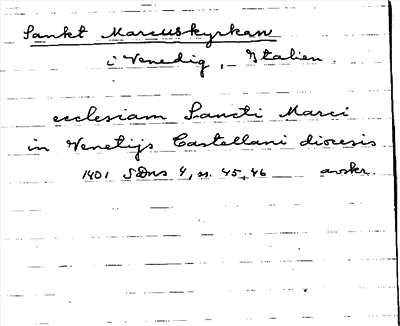 Sankt Marcuskyrkan
i Venedig, Italien.
ecclesiam Sancti Marci
in Venetijs Castellani diocesis
1401 SDns 4, s. 45, 46 avskr.